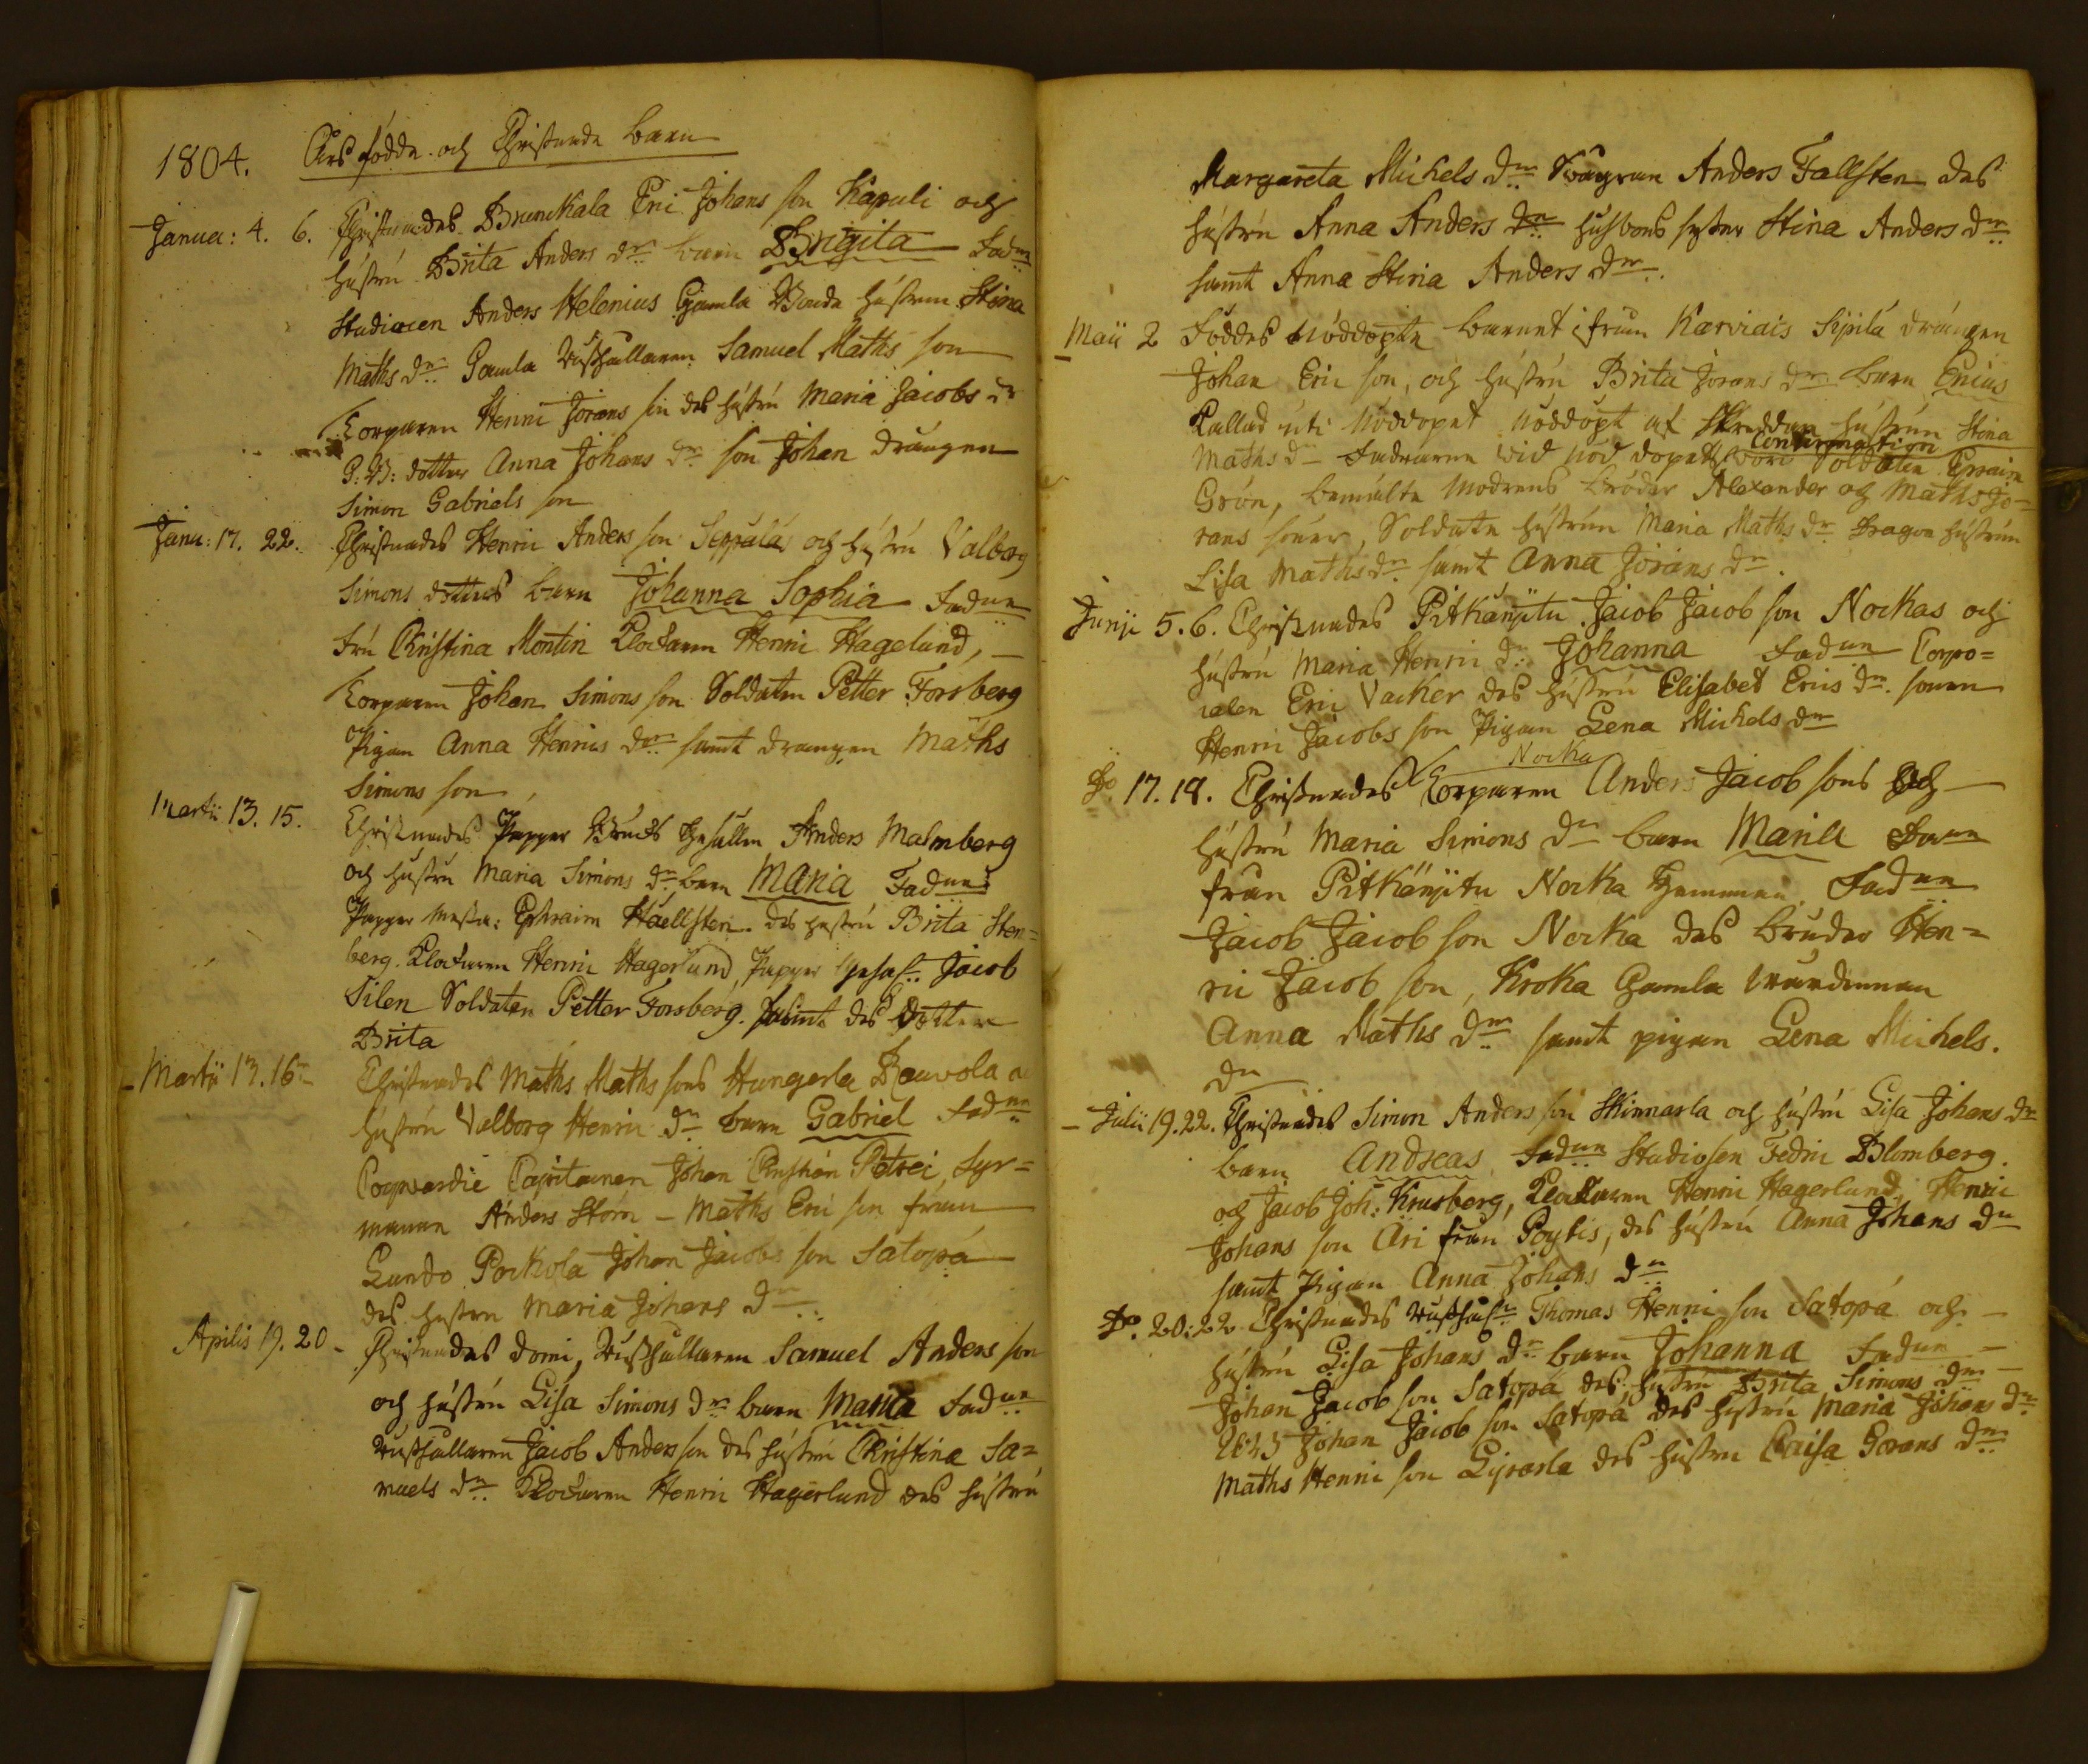 1804. Års födde och Christnade barn
Janua: 4. 6. Christnades Brunckala Eric Johans son Kapuli och
hustru Brita Anders dr barn Brigita Fadr
Studiosen Anders Helenius Gamla hustrun Stina
Maths dr Gamla Rusthållaren Samuel Maths son
Torparen Henric Jörans son des hustru Maria Jacobs dr
G: B: dotter Anna Johans dr son Johan drängen
Simon Gabriels son
Janu: 17. 22. Christnades Henric Anders son Seppälä och hustru Valborg
Simons dotters barn Johanna Sophia Fadrar
Fru Christina Montin Klockaren Henric Hagelund,
Torparen Johan Simons son Soldaten Petter Forsberg
Pigan Anna Henrics dr samt drängen Maths
Simons son,
Martii 13. 15. Christnades Papper Bruks Gesällen Anders Malmberg
och hustru Maria Simons dr barn Maria Fadrar
Papper Mest: Ephraim Häellsten des hustru Brita Sten=
berg. Klockaren Henric Hagerlund Papper Gesäll: Jacob
Silen Soldaten Petter Forsberg. samt des dotter
Brita
Martii 13. 16 Christnades Maths Maths sons Hungerla Rauvola
hustru Valborg Henric dr barn Gabriel Fadrar
Copvardie Capitainen Johan Christian Petrei, Styr=
mannen Anders Störn - Maths Eric son från
Lundo Pockola Johan Jacobs son Satopä
des hustru Maria Johans dr
Aprilis 19. 20 - Christnades domi, Rusthållaren Samuel Anders son
och hustru Lisa Simons dr barn Maria Fadrar
Rusthållaren Jacob Anders son des hustru Christina Sa=
muels dr Klockaren Henric Hagerlund des hustru
Margareta Michels dr Svågren Anders Fallsten des
hustru Anna Anders dr husbons syster Stina Anders dr
samt Anna Stina Anders dr.
Maii 2 Föddes Nöddöpte barnet ifrån Karviais Sipilä drängen
Johan Eric son, och hustru Brita Jörans dr barn Ericus
Kallad uti Nöddopet nöddöpt af Skreddar hustrun Stina
Confirmation
Maths dr Fadrarne vid nöd dopets voro Soldaten Ephraim
Grön, bemälte Modrens bröder Alexander och Maths Jö=
rans söner, Soldate hustrun Maria Maths dr Dragon hustrun
Lisa Maths dr samt Anna Jörans dr.
Junii 5. 6. Christnades Pitkänjitu Jacob Jacob son Nockas och
hustru Maria Henric dr Johanna Fadrar Corpo=
ralen Eric Vacker des hustru Elisabet Erics dr. sonen
Henric Jacobs son Pigan Lena Michels dr
Nocka
Do 17. 18. Christnades Torparen Anders Jacob sons och
hustru Maria Simons dr barn Maria
från Pitkänjitu Nocka Hemman. Fadrar
Jacob Jacob son Nocka des broder Hen=
ric Jacob son, Kroka Gamla värdinnan
Anna Maths dr samt pigan Lena Michels.
dr
Julii 19. 22. Christnades Simon Anders son Skinnarla och hustru Lisa Johans dr
barn Andreas Fadrar Studiosen Fedric Blomberg.
och Jacob Joh: Krusberg, Klockaren Henric Hagerlund, Henric
Johans son Äri från Pöytis, des hustru Anna Johans dr
samt Pigan Anna Johans dr
Do. 20: 22 Christnades Rusthåll: Thomas Henric son Satopä och
hustru Lisa Johans dr barn Johanna Fadrar
Johan Jacob son Satopä des hustru Brita Simons dr
Johan Jacob son Satopä des hustru Maria Johans dr
Maths Henric son Liparla des hustru Caisa Görans dr